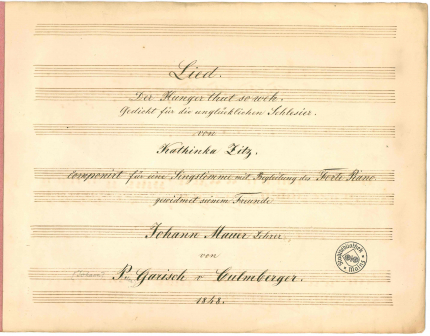 Lied.
Der Hunger thut so weh.
Gedicht für die unglücklichen Schlesier.
von
Kathinka Zitz.
componirt für eine Singstimme mit Begleitung des Forte Piano
gewidmet seinem Freunde
Johann Mauer
von
P. Garisch v Culmberger.
1848.
Stadtbibliothek
Mainz